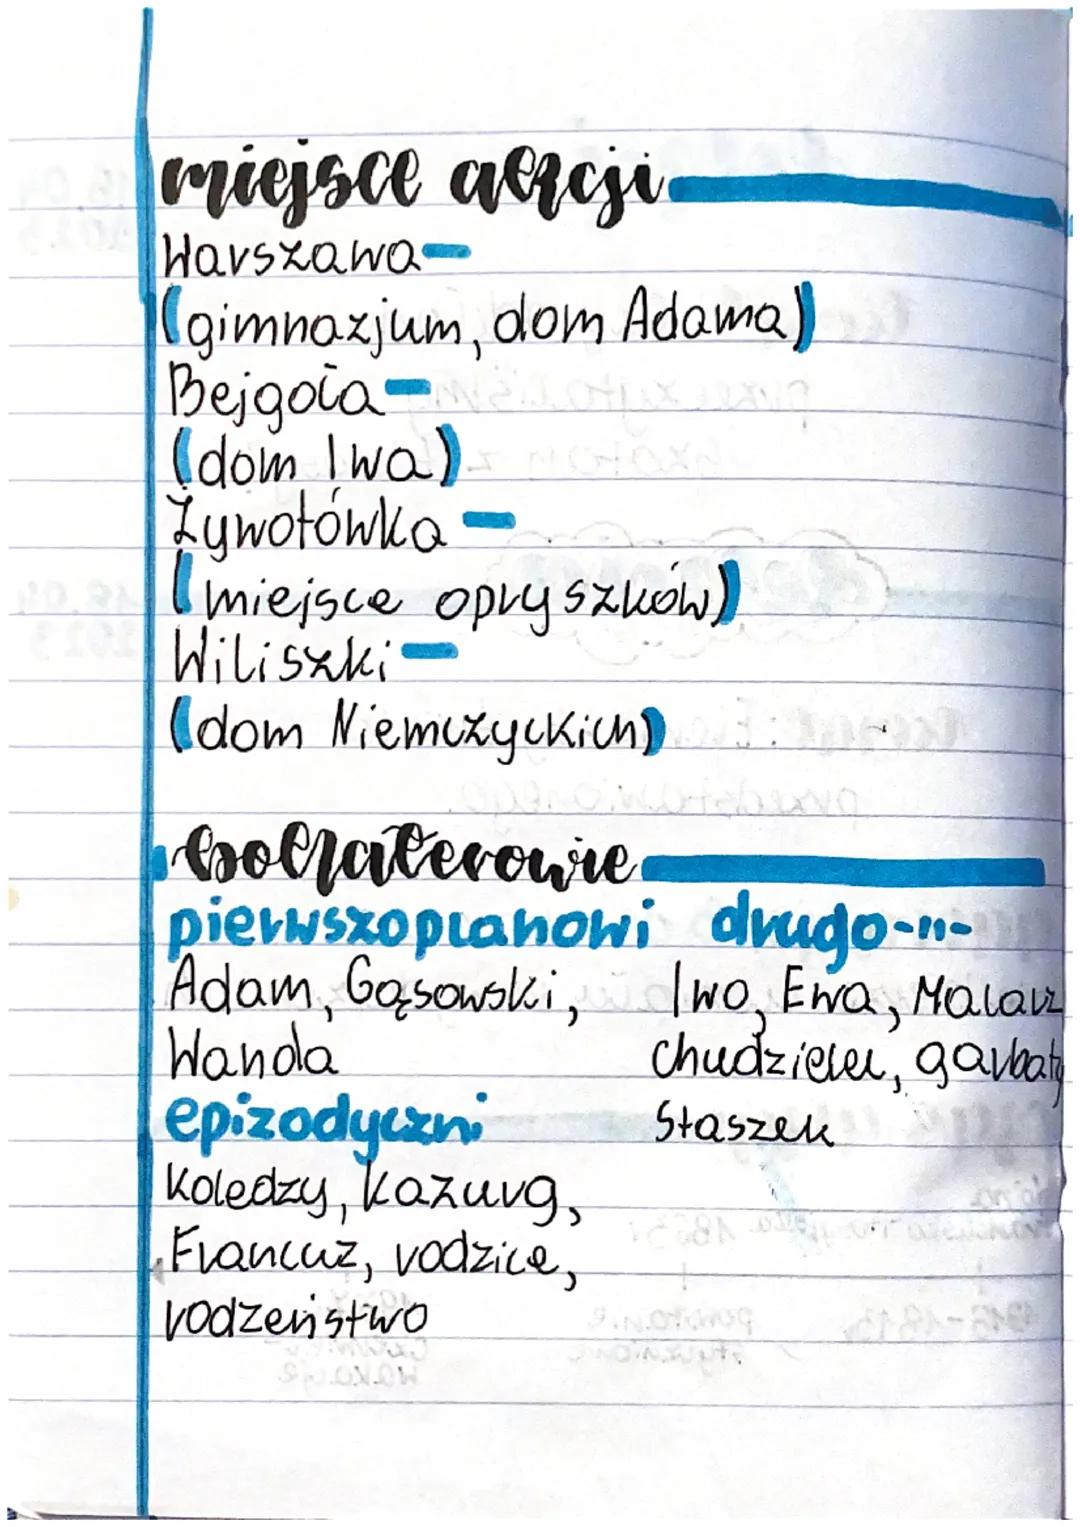 miejsce akcji
Warszawa-
(gimnazjum, dom Adama)
Bejgoła-
(dom Iwa)
Żywotówka -
(miejsce opryszków)
Wiliszki-
(dom Niemczyckich)
bohaterowie
pierwszoplanowi drugo-11-
Adam, Gąsowski, Iwo, Ewa, Malarz
Wanda chudzielec, garbaty
epizodyczni Staszek
Koledzy, Kazurg,
Francuz, rodzice,
rodzeństwo